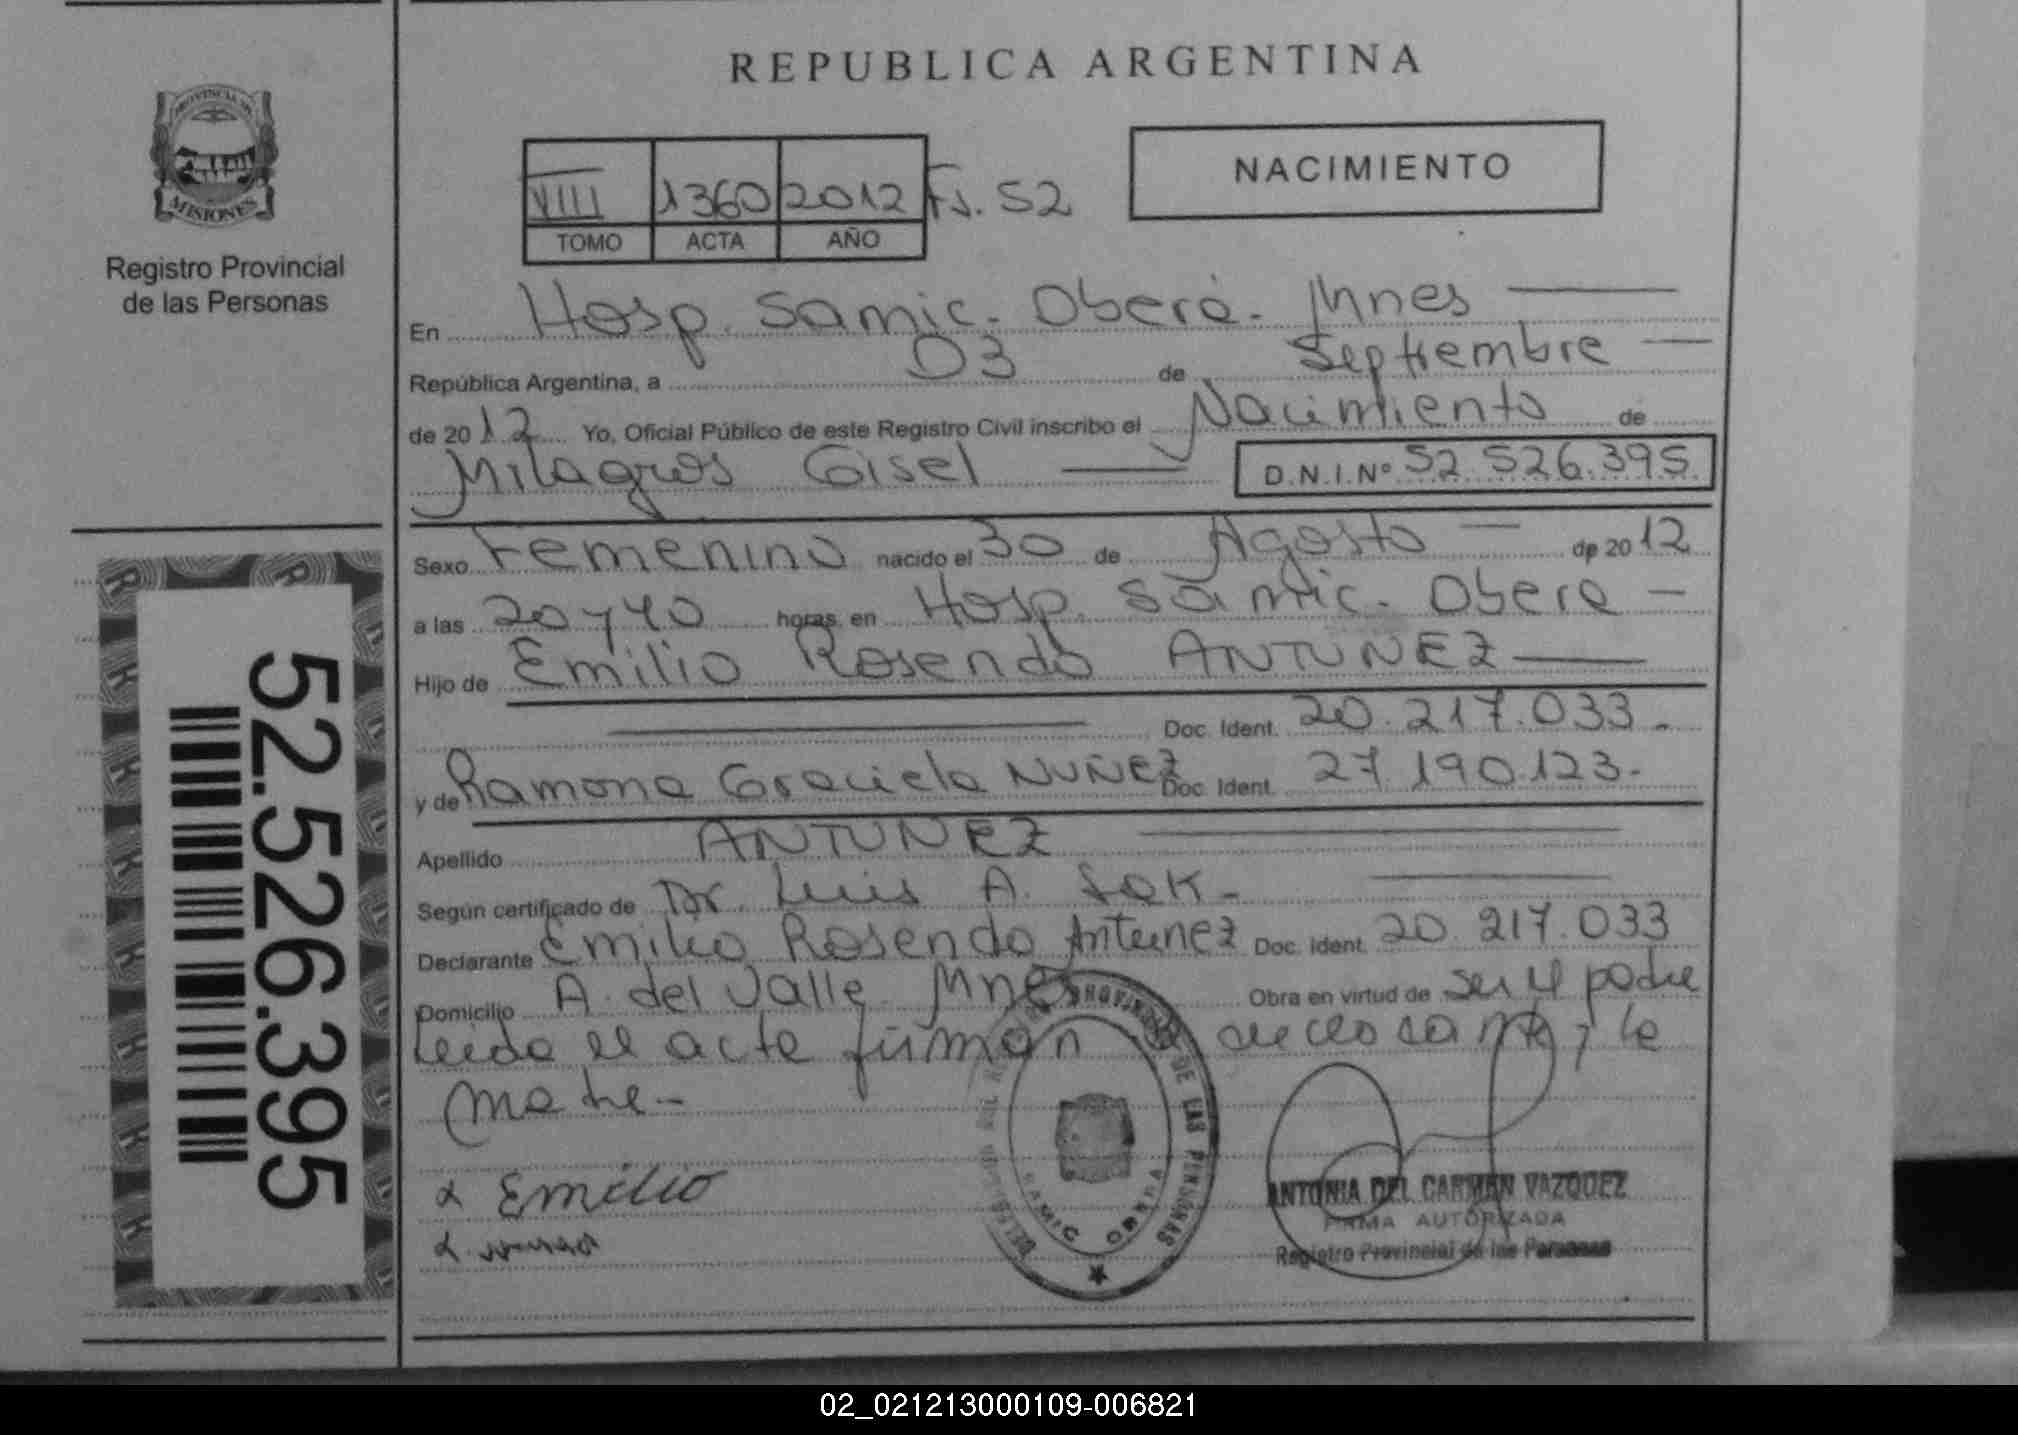 REPUBLICA ARGENTINA
PROVINCIA DE
MISIONES
Registro Provincial
de las Personas
VIII 1360 2012 Fs. 52
TOMO ACTA AÑO
NACIMIENTO
En Hosp. Samic. Oberá. Mnes
República Argentina, a 03 de Septiembre
de 2012 Yo, Oficial Público de este Registro Civil inscribo el Nacimiento de
Milagros Gisel D.N.I.Nº 52.526.395
Sexo Femenino nacido el 30 de Agosto de 2012
a las 20 y 40 horas, en Hosp. Samic. Obera
Hijo de Emilio Rosendo ANTUNEZ
Doc. Ident. 20.217.033.
y de Ramona Graciela NUÑEZ Doc. Ident. 27.190.123.
Apellido ANTUNEZ
Según certificado de Dr. Luis A.
Declarante Emilio Rosendo Antunez Doc. Ident. 20.217.033
Domicilio A. del Valle Mnes Obra en virtud de ser el padre
Leida el acta firman el declarante y la
madre.
Emilio
DE LAS PERSONAS
SAMIC OBERA
ANTONIA DEL CARMEN VAZQUEZ
FIRMA AUTORIZADA
Registro Provincial de las Personas
52.526.395
02_021213000109-006821